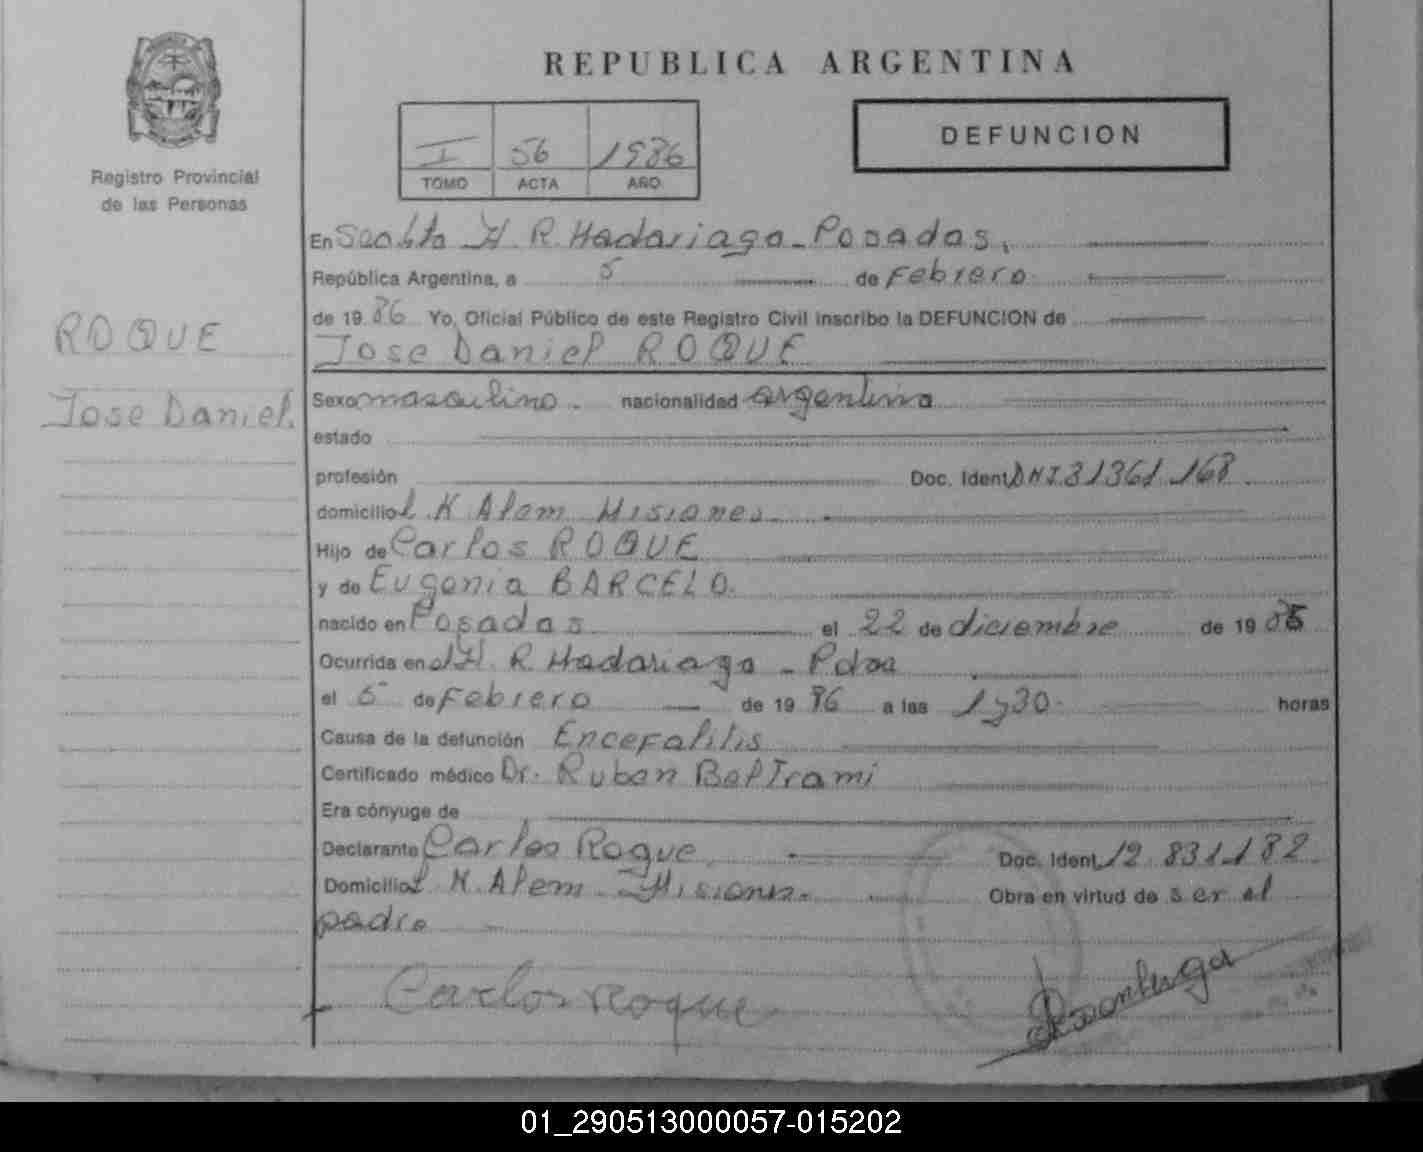 REPUBLICA ARGENTINA
Registro Provincial
de las Personas
I 56 1986
TOMO ACTA AÑO
DEFUNCION
ROQUE
Jose Daniel.
En H. R. Madariaga - Posadas,
República Argentina, a 5 de Febrero
de 1986 Yo, Oficial Público de este Registro Civil inscribo la DEFUNCION de
Jose Daniel ROQUE
Sexo masculino. nacionalidad argentina
estado
profesión Doc. Ident DNI 31361.168.
domicilio L. N Alem Misiones
Hijo de Carlos ROQUE
y de Eugenia BARCELO.
nacido en Posadas el 22 de diciembre de 1985
Ocurrida en H. R. Madariaga - Pdas
el 5 de Febrero de 1986 a las 1y30 horas
Causa de la defunción Encefalitis
Certificado médico Dr. Ruben Beltrami
Era cónyuge de
Declarante Carlos Roque Doc. Ident. 12.831.182
Domicilio L. N. Alem - Misiones. Obra en virtud de ser el
padre
Carlos Roque
01_290513000057-015202